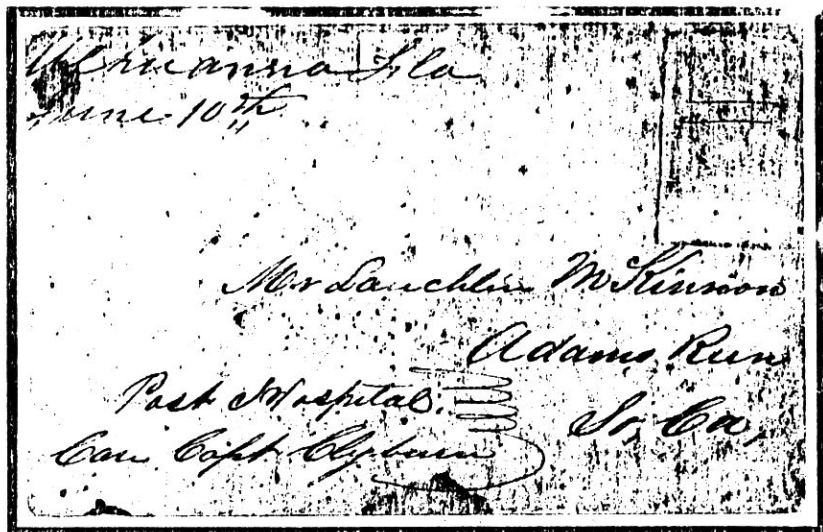 Fla
June 10th
Mr Lauchlin McKinnon
Adams Run
So, Ca,
Post Hospital.
Care Capt Clyburn